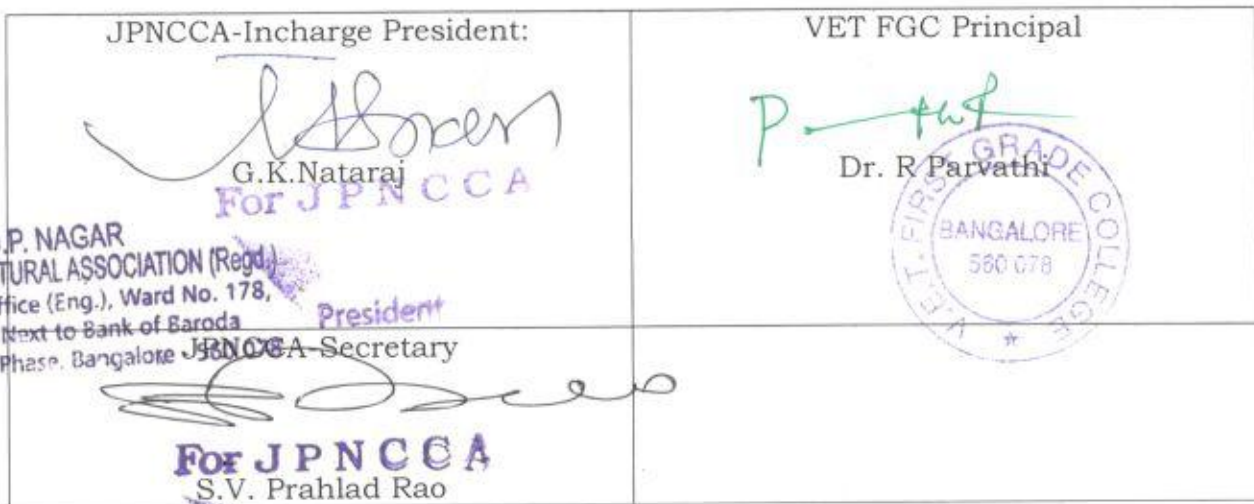 JPNCCA-Incharge President:
G.K.Nataraj
For J P N C C A
.P. NAGAR
TURAL ASSOCIATION (Regd.)
ffice (Eng.), Ward No. 178,
Next to Bank of Baroda
Phase. Bangalore - 560 078
President
VET FGC Principal
Dr. R Parvathi
V.E.T. FIRST GRADE COLLEGE
BANGALORE
560 078
JPNCCA-Secretary
For J P N C C A
S.V. Prahlad Rao